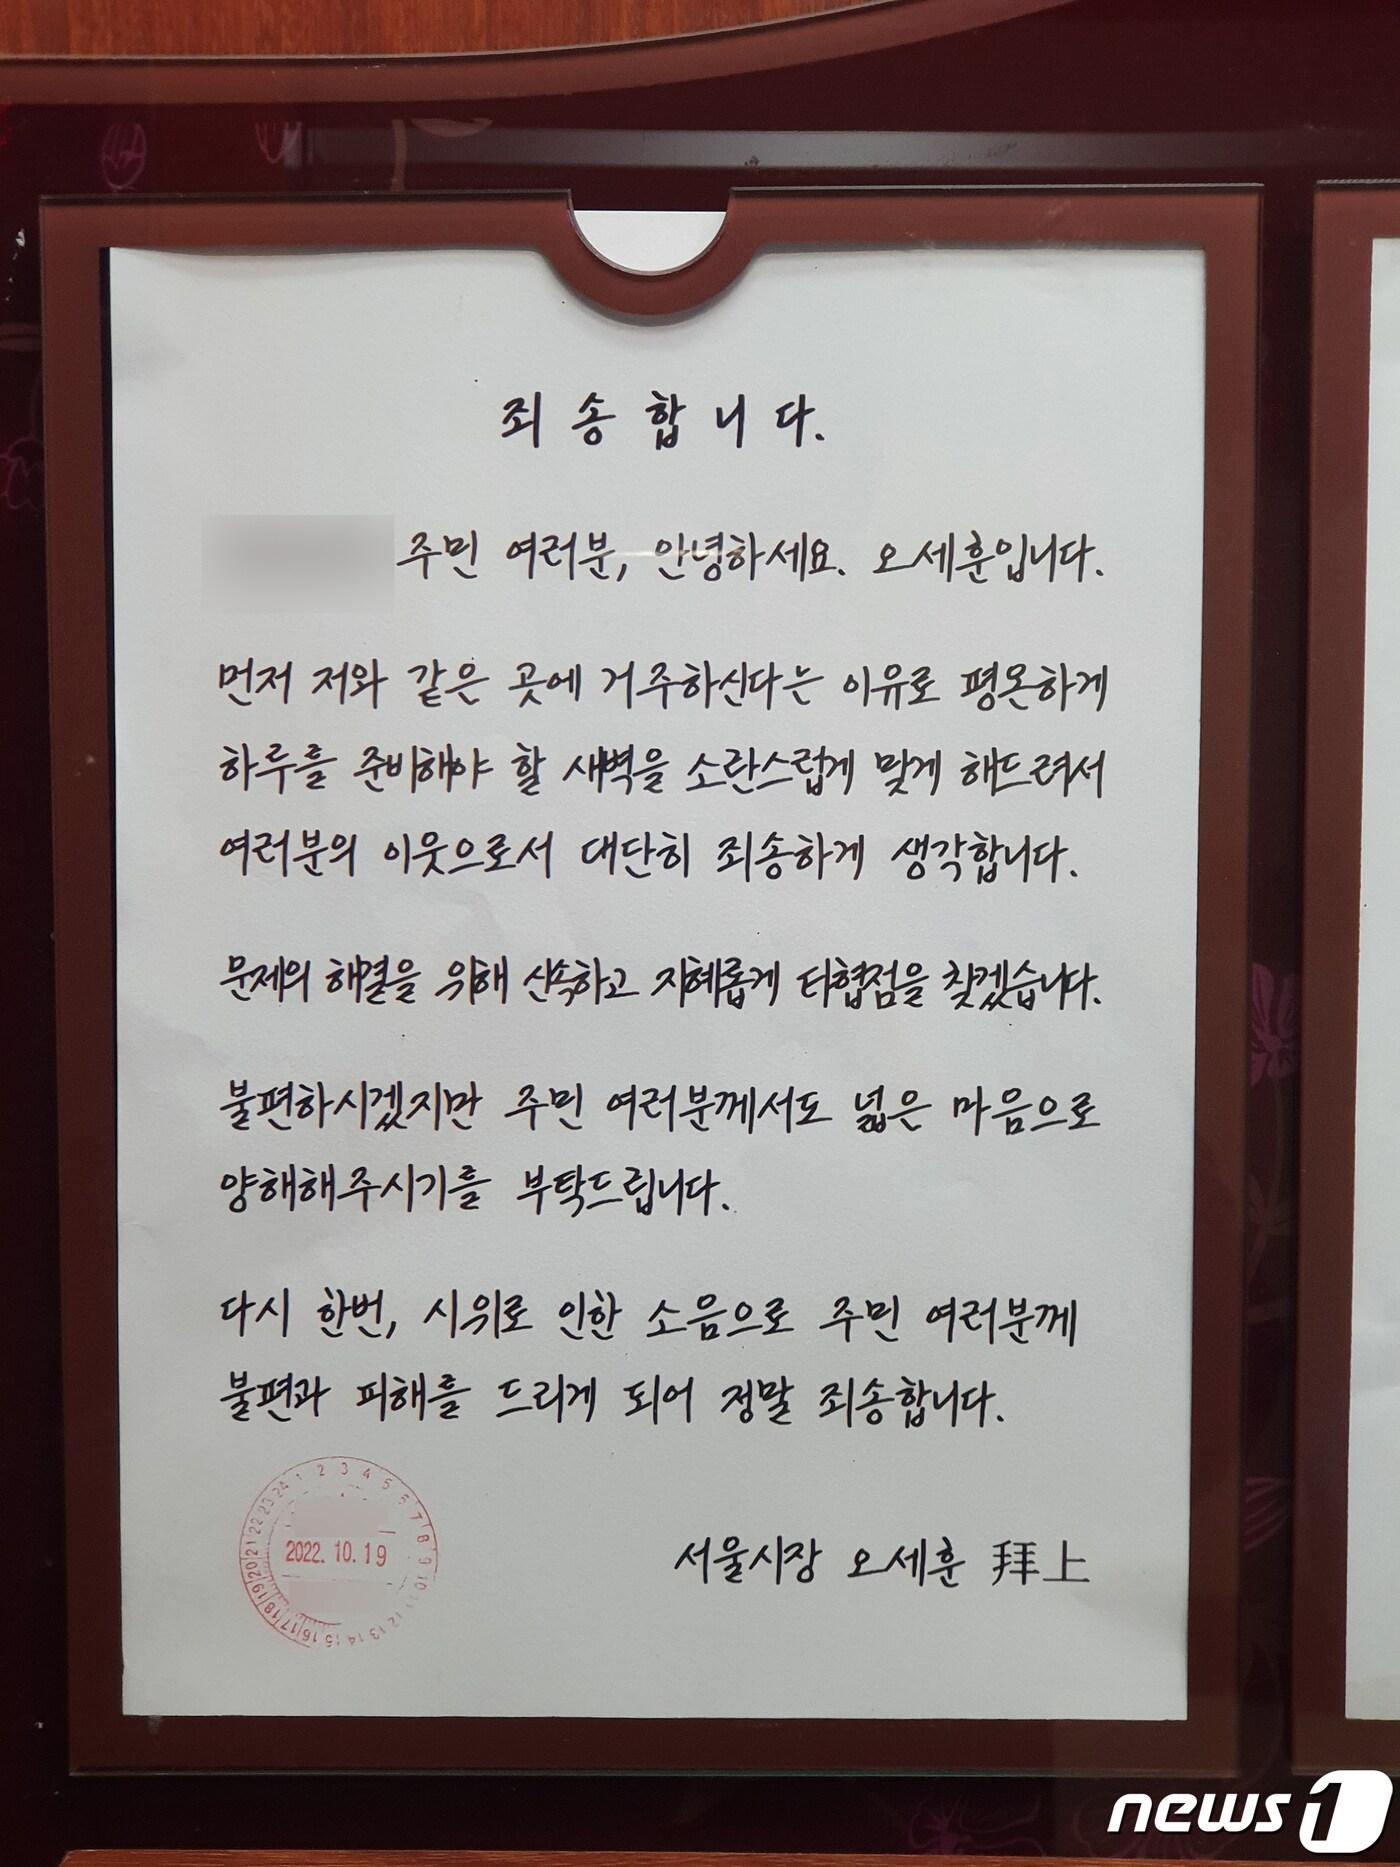 죄송합니다.
주민 여러분, 안녕하세요. 오세훈입니다.
먼저 저와 같은 곳에 거주하신다는 이유로 평온하게
하루를 준비해야 할 새벽을 소란스럽게 맞게 해드려서
여러분의 이웃으로서 대단히 죄송하게 생각합니다.
문제의 해결을 위해 신속하고 지혜롭게 타협점을 찾겠습니다.
불편하시겠지만 주민 여러분께서도 넓은 마음으로
양해해주시기를 부탁드립니다.
다시 한번, 시위로 인한 소음으로 주민 여러분께
불편과 피해를 드리게 되어 정말 죄송합니다.
1 2 3 4 5 6 7 8 9 10 11 12 13 14 15 16 17 18 19 20 21 22 23 24
2022. 10. 19
서울시장 오세훈 拜上
news1